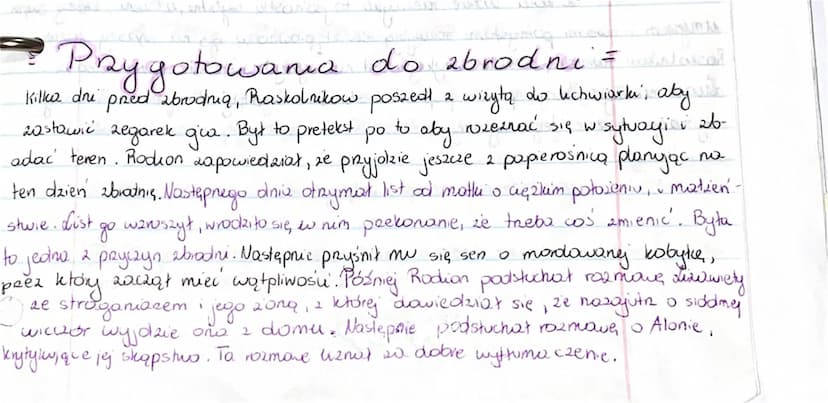 Przygotowania do zbrodni =
Kilka dni przed zbrodnią, Raskolnikow poszedł z wizytą do lichwiarki, aby
zastawić zegarek ojca. Był to pretekst po to aby rozeznać się w sytuacji i zb-
adać teren. Rodion zapowiedział, że przyjdzie jeszcze z papierośnicą planując na
ten dzień zbrodnię. Następnego dnia otrzymał list od matki o ciężkim położeniu, i małżeń-
stwie. List go wzruszył, wrodziło się w nim przekonanie, że trzeba coś zmienić. Była
to jedna z przyczyn zbrodni. Następnie przyśnił mu się sen o mordowanej kobyłce,
przez który zaczął mieć wątpliwości. Później Rodion podsłuchał rozmowę Lizawiety
ze straganiarzem i jego żoną, z której dowiedział się, że nazajutrz o siódmej
wieczór wyjdzie ona z domu. Następnie podsłuchał rozmowę o Alonie,
krytykujące jej skąpstwo. Ta rozmowę uznał za dobre wytłumaczenie.